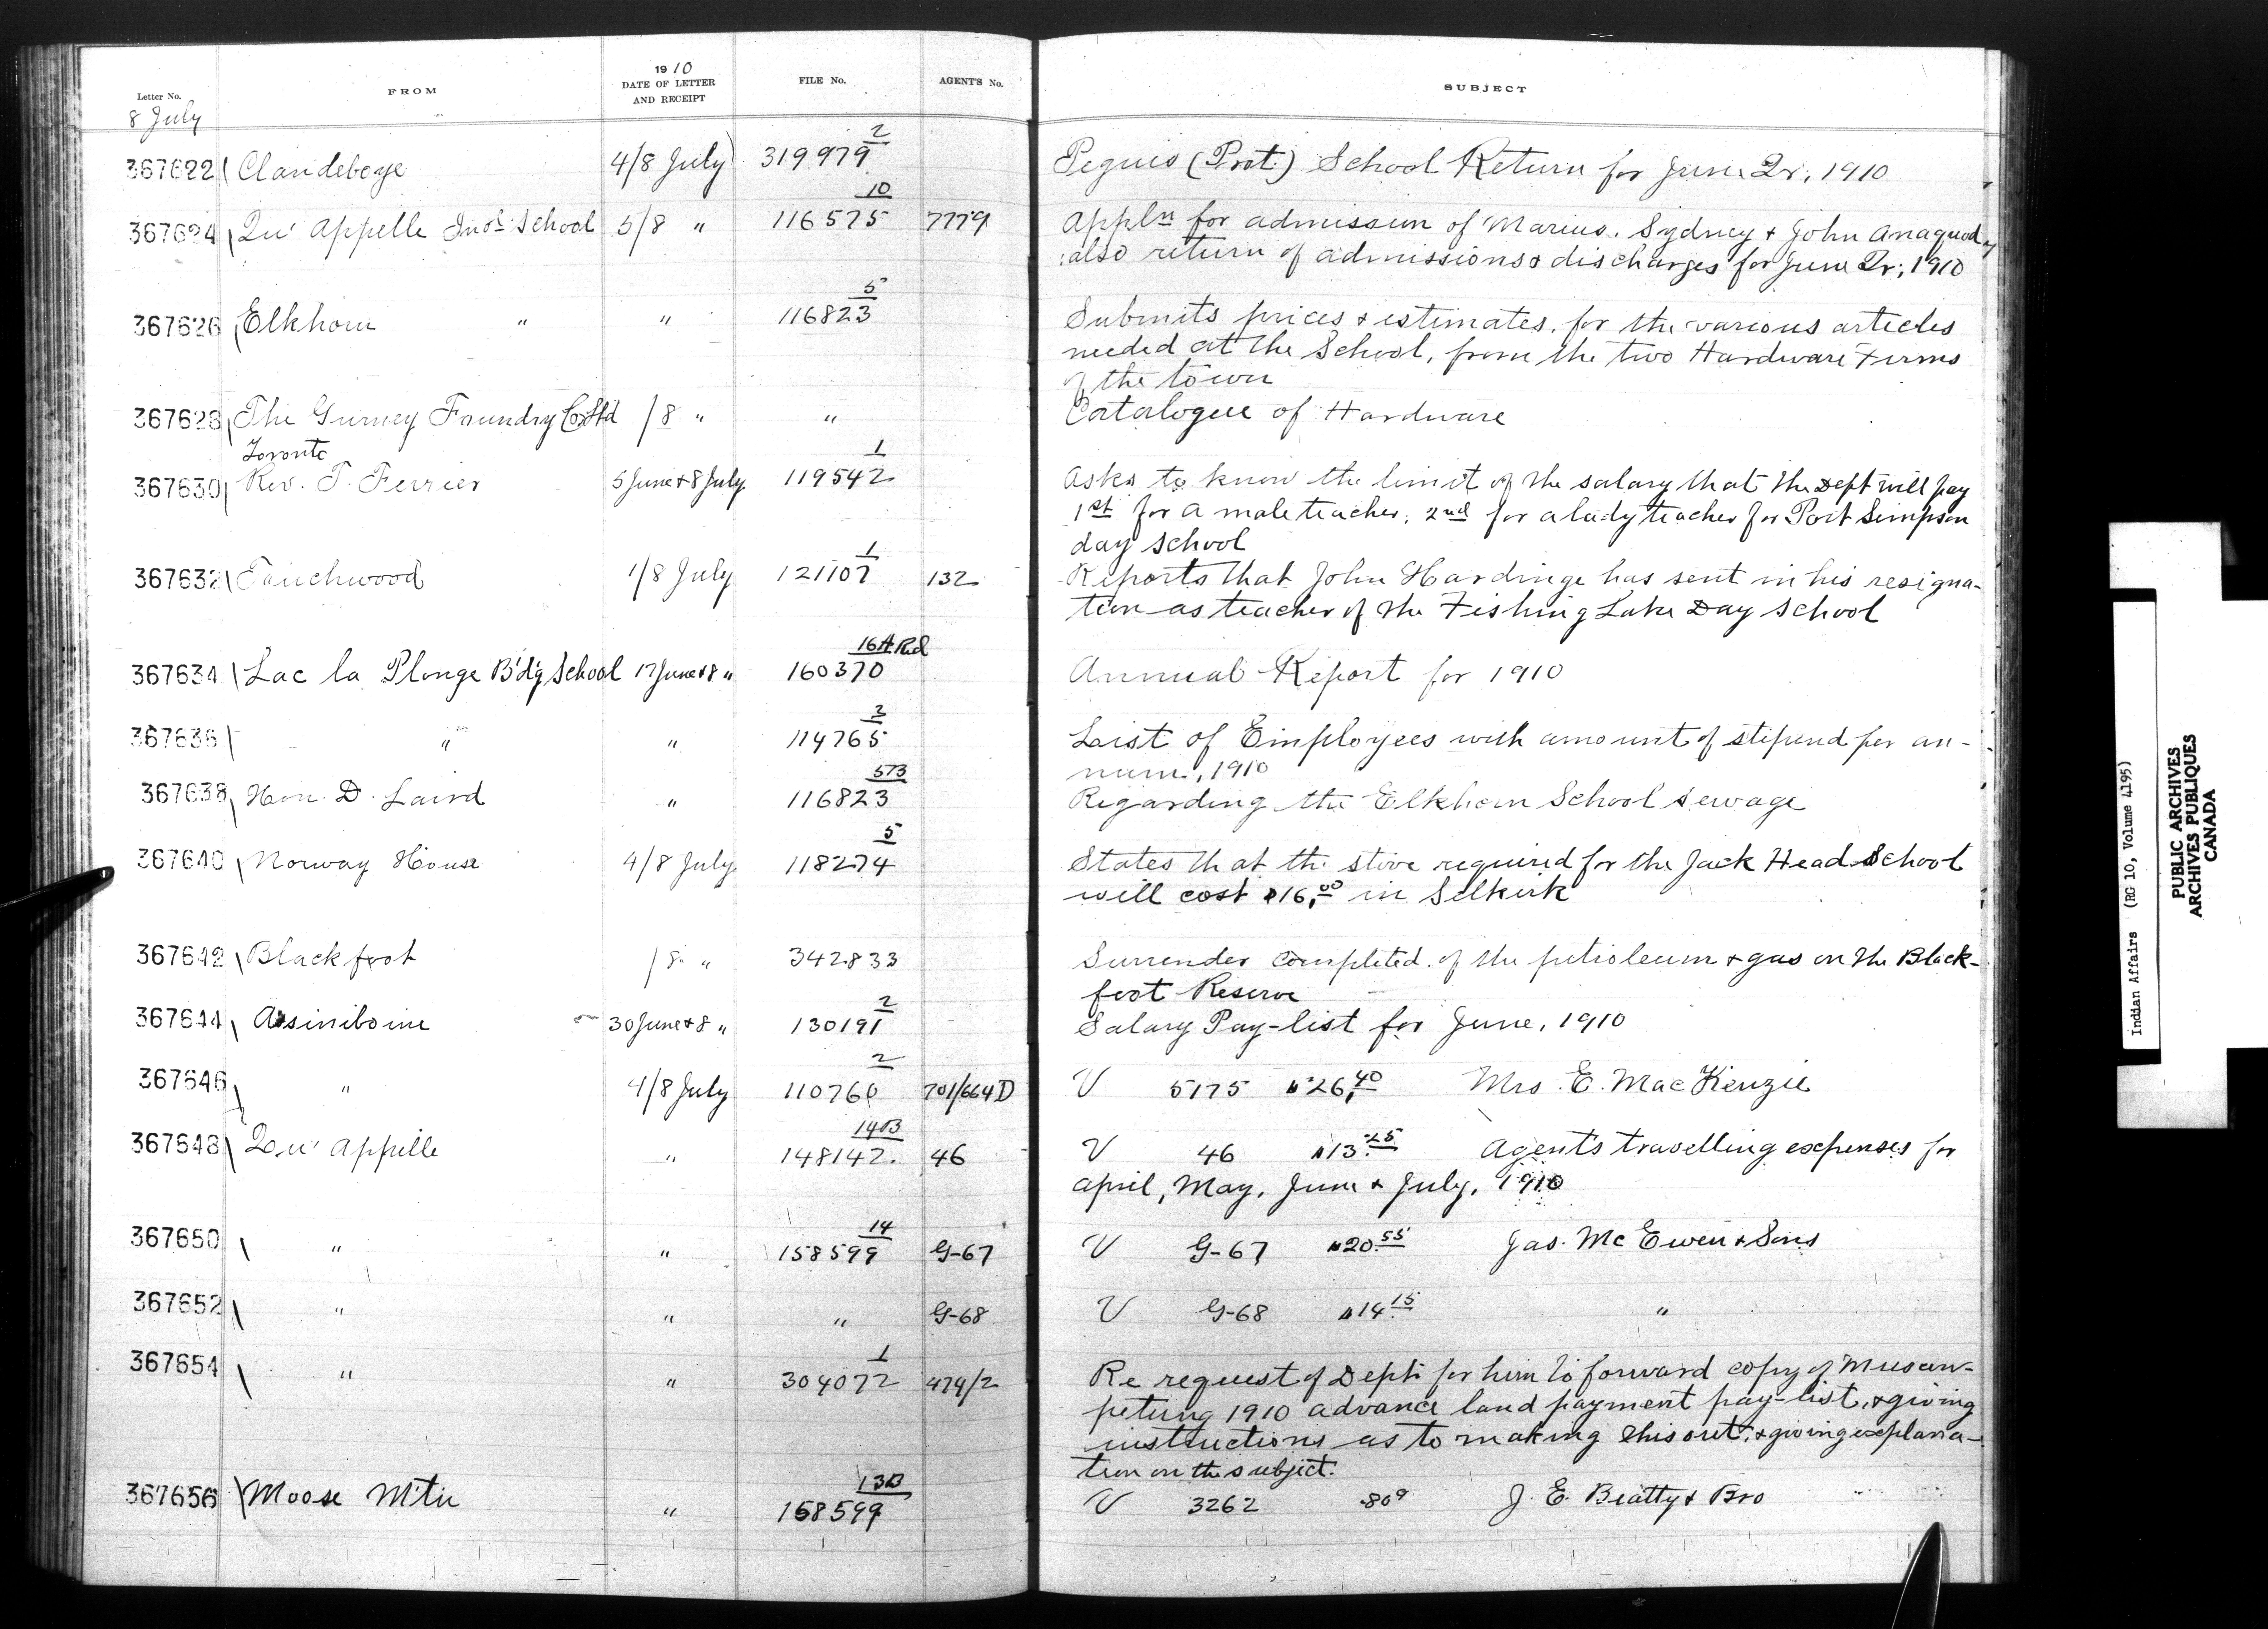 Letter No. FROM 1910 DATE OF LETTER AND RECEIPT FILE No. AGENT'S No. SUBJECT
8 July
367622 Clandeboye 4/8 July 319979 2 Peguis (Prot.) School Return for June Qr, 1910
367624 Qu'Appelle Indl School 5/8 " 116575 10 7779 Appln for admission of Marius, Sydney & John Anaquod,
also return of admissions & discharges for June Qr, 1910
367626 Elkhorn " " 116823 5 Submits prices & estimates, for the various articles
needed at the School, from the two Hardware Firms
of the town
367628 The Gurney Foundry Co Ltd /8 " " Catalogue of Hardware
Toronto
367630 Rev. T. Ferrier 5 June & 8 July 119542 1 Asks to know the limit of the salary that the Dept will pay
1st for a male teacher, 2nd for a lady teacher for Port Simpson
day school
367632 Touchwood 1/8 July 121107 1 132 Reports that John Hardinge has sent in his resigna-
tion as teacher of the Fishing Lake Day School
367634 Lac la Plonge B'd'g School 17 June & 8 " 160370 16A Rcd Annual Report for 1910
367636 " " 114765 3 List of Employees with amount of stipend per an-
num, 1910
367638 Hon. D. Laird " 116823 573 Regarding the Elkhorn School sewage
367640 Norway House 4/8 July 118274 5 States that the stove required for the Jack Head School
will cost $16,00 in Selkirk
367642 Blackfoot /8 " 342833 Surrender completed of the petroleum & gas on the Black-
foot Reserve
367644 Assiniboine 30 June & 8 " 130191 2 Salary Pay-list for June, 1910
367646 " 4/8 July 110760 2 701/664D V 5175 $26,40 Mrs. E. MacKenzie
367648 Qu'Appelle " 148142 14B 46 V 46 $13.25 Agent's travelling expenses for
April, May, June & July, 1910
367650 " " 158599 14 G-67 V G-67 $20.55 Jas. McEwen & Sons
367652 " " " G-68 V G-68 $14.15 "
367654 " " 304072 1 474/2 Re request of Dept. for him to forward copy of Muscow-
petung 1910 advance land payment pay-list, & giving
instructions as to making this out, & giving explana-
tion on the subject.
367656 Moose Mtn " 158599 13B V 3262 .809 J. E. Beatty & Bro
Indian Affairs (RG 10, Volume 4195)
PUBLIC ARCHIVES
ARCHIVES PUBLIQUES
CANADA